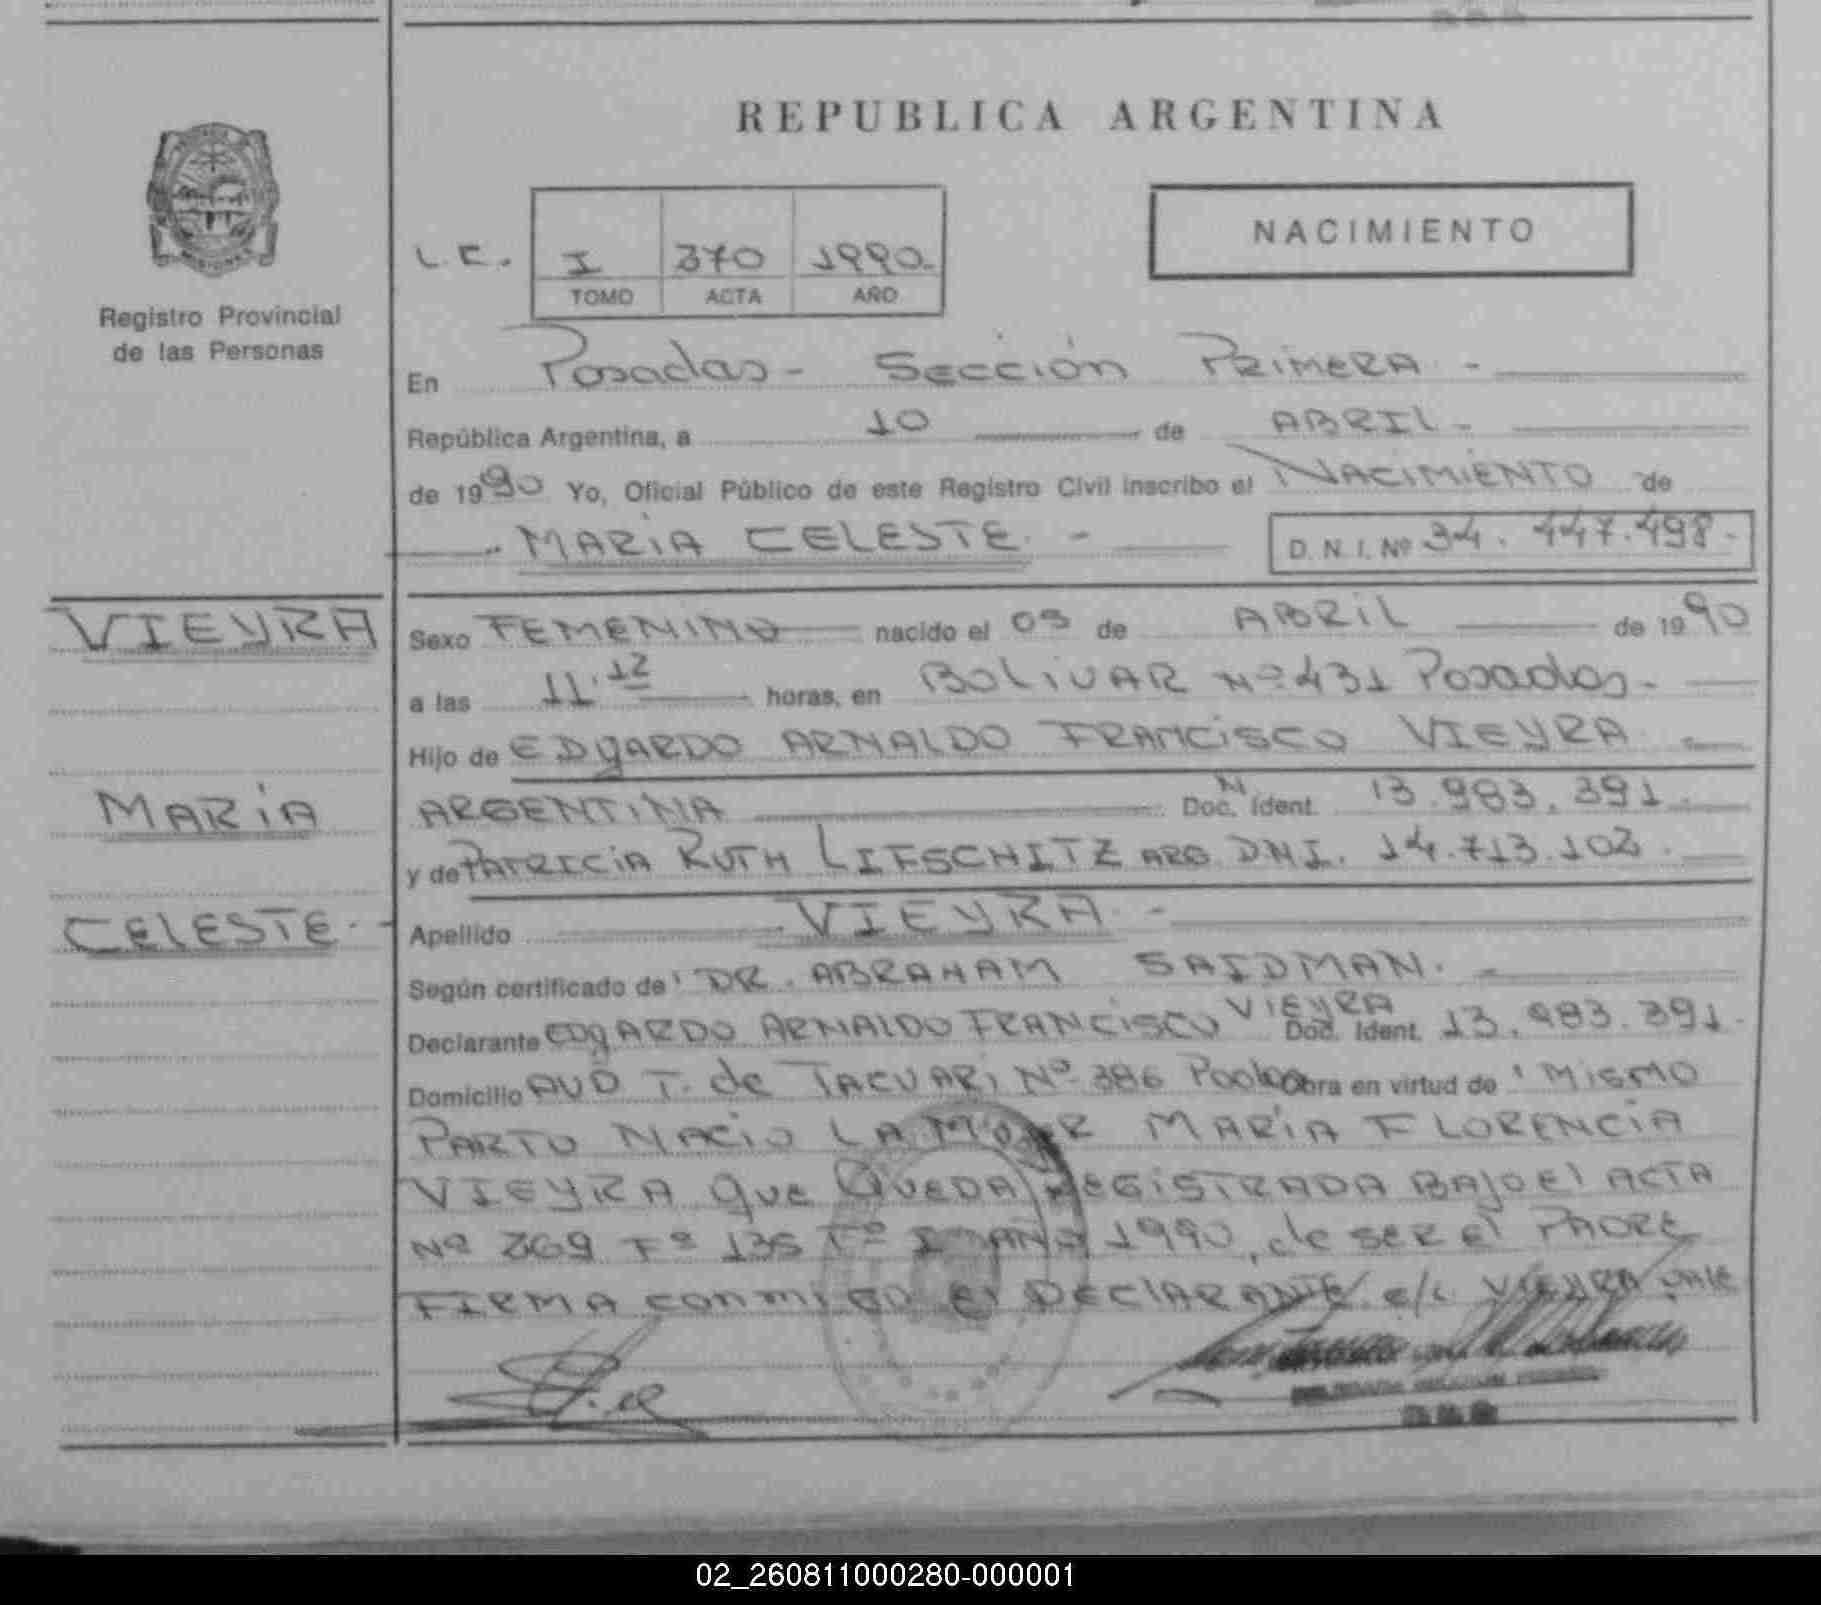 REPUBLICA ARGENTINA
NACIMIENTO
L.C. I 370 1990.
TOMO ACTA AÑO
Registro Provincial
de las Personas
En Posadas - Sección Primera -
República Argentina, a 10 de ABRIL -
de 1990 Yo, Oficial Público de este Registro Civil inscribo el NACIMIENTO de
MARIA CELESTE. - D.N.I. Nº 34.447.498-
VIEYRA
Sexo FEMENINO nacido el 05 de ABRIL de 1990
a las 11.12 horas, en BOLIVAR Nº 431 Posadas -
Hijo de EDGARDO ARNALDO FRANCISCO VIEYRA
MARIA
ARGENTINA Doc. Ident. 13.983.391.
y de PATRICIA RUTH LIFSCHITZ ARG. DNI. 14.713.102.
CELESTE. -
Apellido VIEYRA. -
Según certificado de DR. ABRAHAM SAIDMAN. -
Declarante EDGARDO ARNALDO FRANCISCO VIEYRA Doc. Ident. 13.983.391.
Domicilio AVD T. de TACUARI Nº 386 Posadas Obra en virtud de MISMO
PARTO NACIO LA MUJER MARIA FLORENCIA
VIEYRA que QUEDA REGISTRADA BAJO El ACTA
Nº 369 Fº 135 Tº I AÑO 1990, de ser el PADRE
FIRMA conmigo El DECLARANTE. e/L VIEYRA VALE
02_260811000280-000001